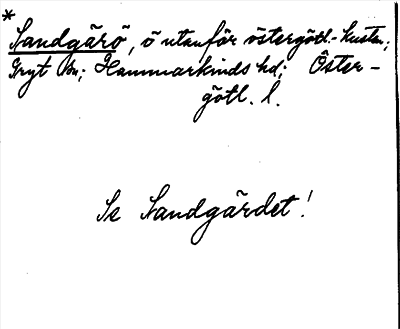 *
Sandgärö, ö utanför östergötl.-kusten;
Gryt sn; Hammarkinds hd; Öster-
götl. l.
Se Sandgärdet!